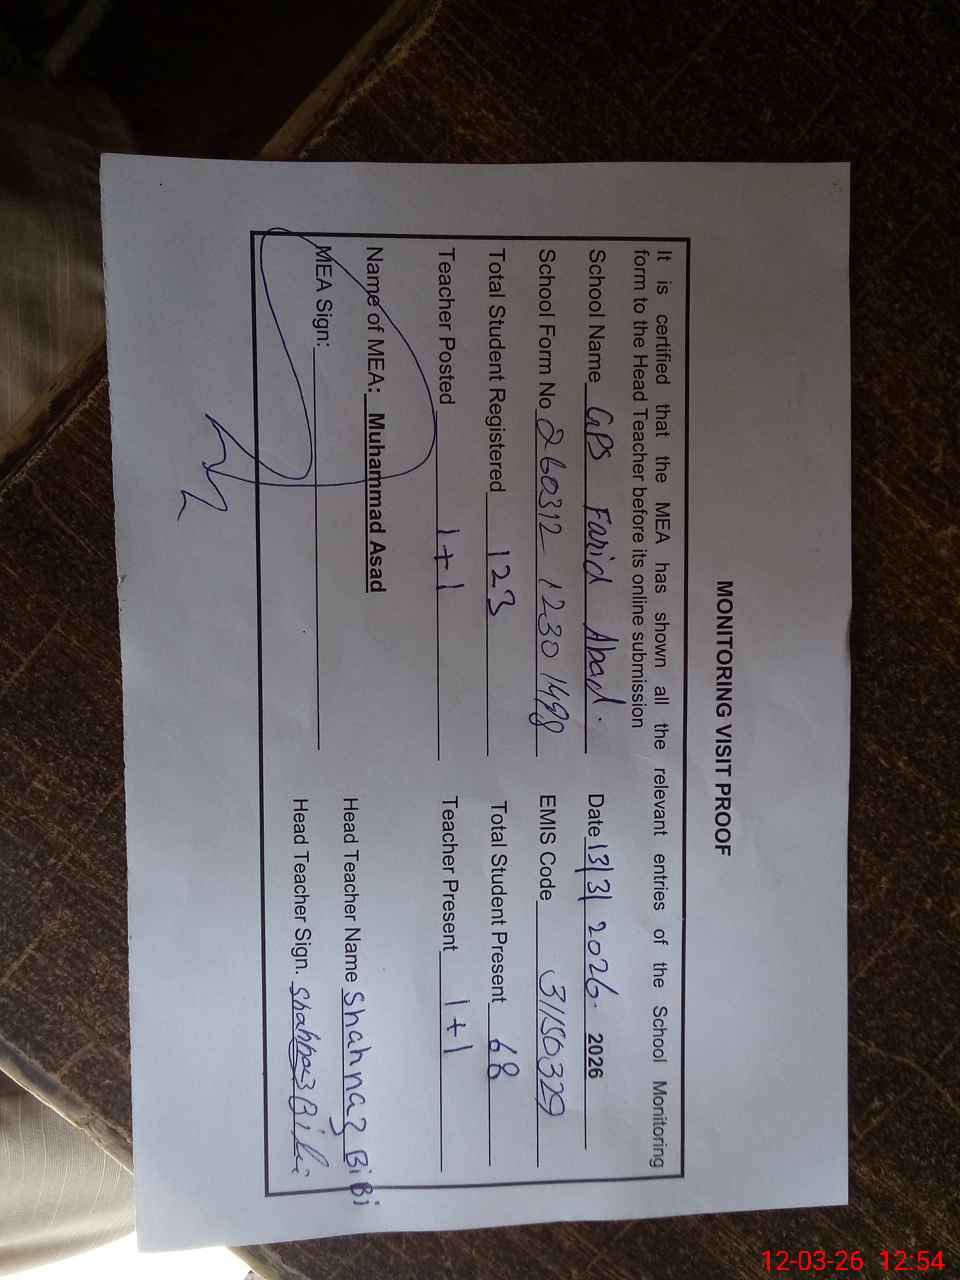 MONITORING VISIT PROOF
It is certified that the MEA has shown all the relevant entries of the School Monitoring
form to the Head Teacher before its online submission
School Name GPS Farid Abad. Date 13/3/2026. 2026
School Form No 260312 12301498 EMIS Code 31150329
Total Student Registered 123 Total Student Present 68
Teacher Posted 1+1 Teacher Present 1+1
Name of MEA: Muhammad Asad Head Teacher Name Shahnaz BiBi
MEA Sign: Head Teacher Sign. Shahnaz Bibi
12-03-26 12:54